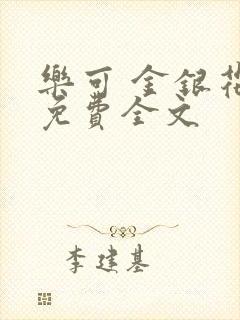 樂可 金銀花
免費全文
李建基